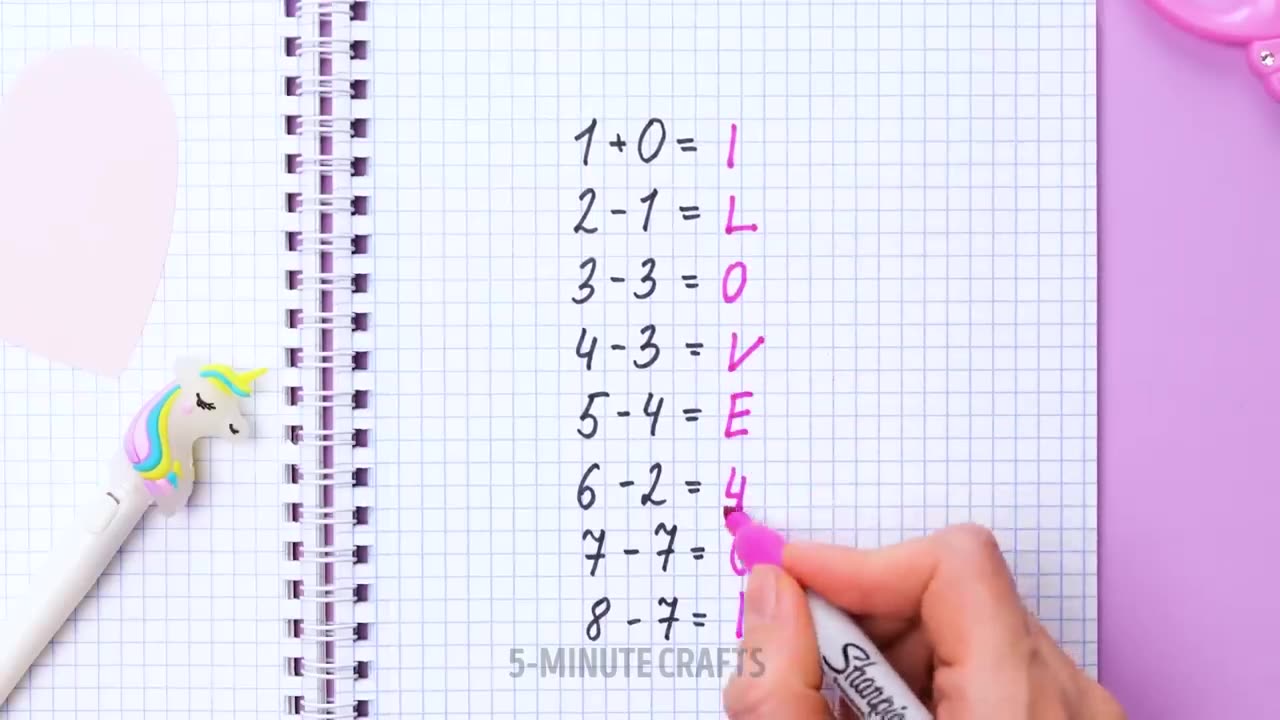 1+0= I
2-1= L
3-3= O
4-3= V
5-4= E
6-2= 4
7-7=
8-7=
5-MINUTE CRAFTS
Sharpie